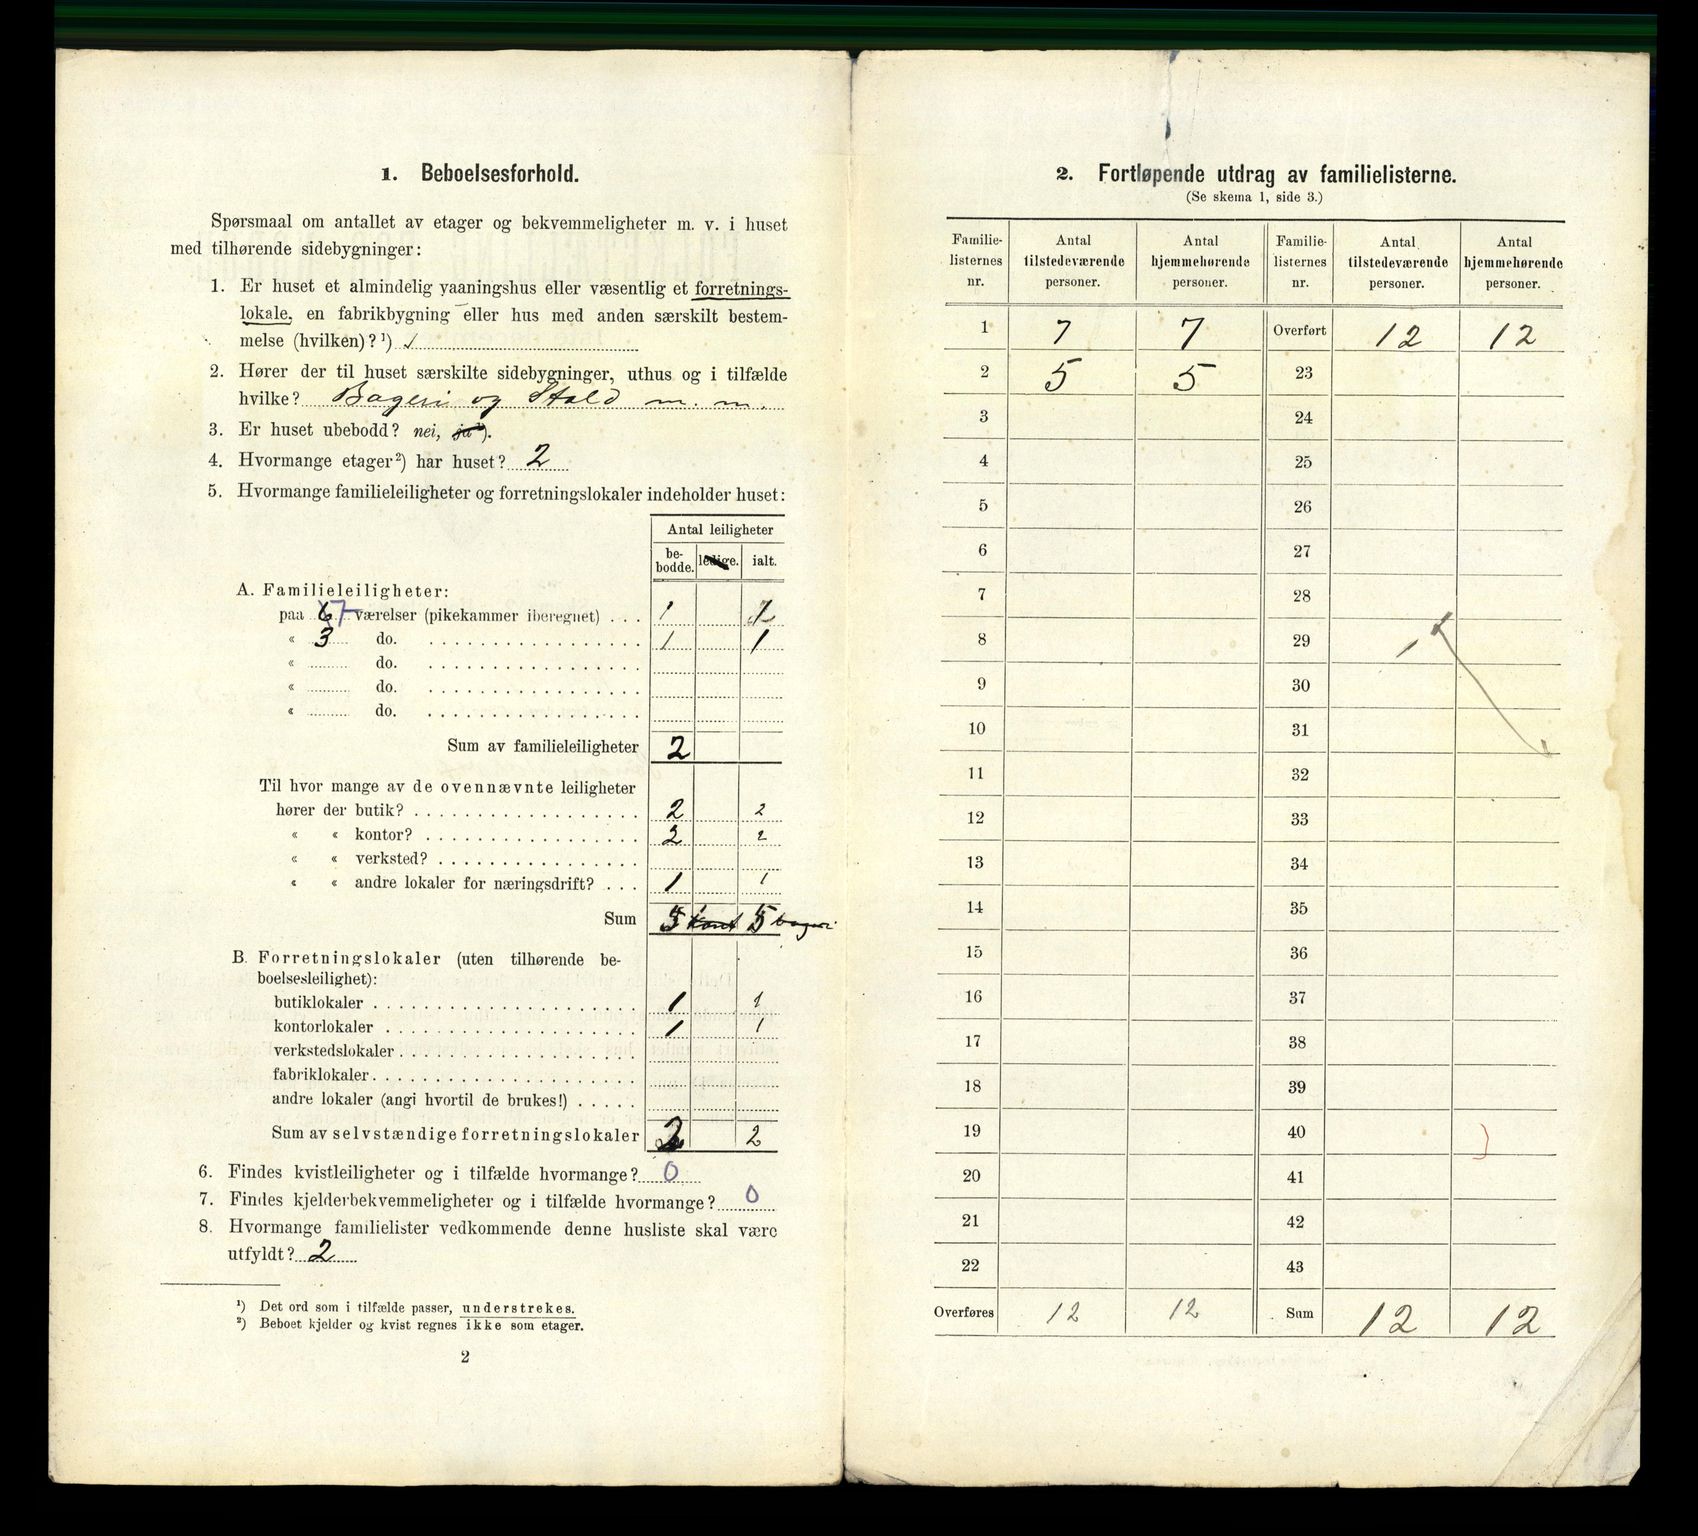 1. Beboelsesforhold.
Spørsmaal om antallet av etager og bekvemmeligheter m. v. i huset
med tilhørende sidebygninger:
1. Er huset et almindelig vaaningshus eller væsentlig et forretnings-
lokale, en fabrikbygning eller hus med anden særskilt bestem-
melse (hvilken)?¹)
2. Hører der til huset særskilte sidebygninger, uthus og i tilfælde
hvilke? Bageri og Stald m. m.
3. Er huset ubebodd? nei, ja¹).
4. Hvormange etager²) har huset? 2
5. Hvormange familieleiligheter og forretningslokaler indeholder huset:
Antal leiligheter
be-bodde. ledige. ialt.
A. Familieleiligheter:
paa 6 7 værelser (pikekammer iberegnet) . . . 1 1
« 3 do. 1 1
« do.
« do.
« do.
Sum av familieleiligheter 2
Til hvor mange av de ovennævnte leiligheter
hører der butik? 2 2
« « kontor? 2 2
« « verksted?
« « andre lokaler for næringsdrift? . . . 1 1
Sum 5 5 bageri
B. Forretningslokaler (uten tilhørende be-
boelsesleilighet):
butiklokaler 1 1
kontorlokaler 1 1
verkstedslokaler
fabriklokaler
andre lokaler (angi hvortil de brukes!)
Sum av selvstændige forretningslokaler 2 2
6. Findes kvistleiligheter og i tilfælde hvormange? 0
7. Findes kjelderbekvemmeligheter og i tilfælde hvormange? 0
8. Hvormange familielister vedkommende denne husliste skal være
utfyldt? 2
¹) Det ord som i tilfælde passer, understrekes.
²) Beboet kjelder og kvist regnes ikke som etager.
2
2. Fortløpende utdrag av familielisterne.
(Se skema 1, side 3.)
Familie-listernes nr. Antal tilstedeværende personer. Antal hjemmehørende personer. Familie-listernes nr. Antal tilstedeværende personer. Antal hjemmehørende personer.
1 7 7 Overført 12 12
2 5 5 23
3 24
4 25
5 26
6 27
7 28
8 29
9 30
10 31
11 32
12 33
13 34
14 35
15 36
16 37
17 38
18 39
19 40
20 41
21 42
22 43
Overføres 12 12 Sum 12 12